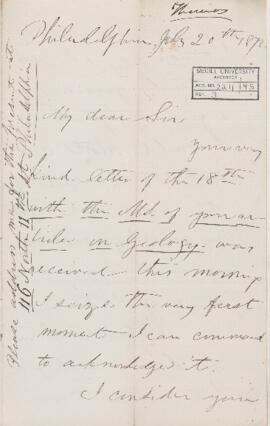 Thomas
Philadelphia, July 20th 187
McGILL UNIVERSITY
ARCHIVES
ACC. NO.
REF. 3
My dear Sir
Your very
kind letter of the 18th
with the MS. of your ar-
ticles on Geology was
received this morning
I seize the very first
moment I can command
to acknowledge it.
I consider your
Please address me for the present at
116 North 11th St Philadelphia